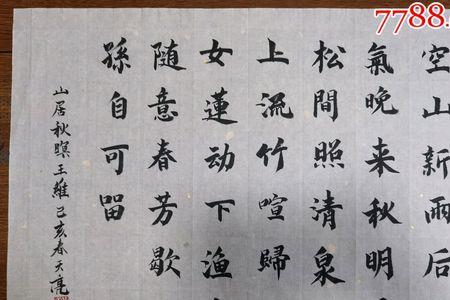 7788.
空山新雨后
氣晚来秋明
松間照清泉
上流竹喧歸
女蓮动下漁
随意春芳歇
孫自可留
山居秋暝王維己亥春天亮